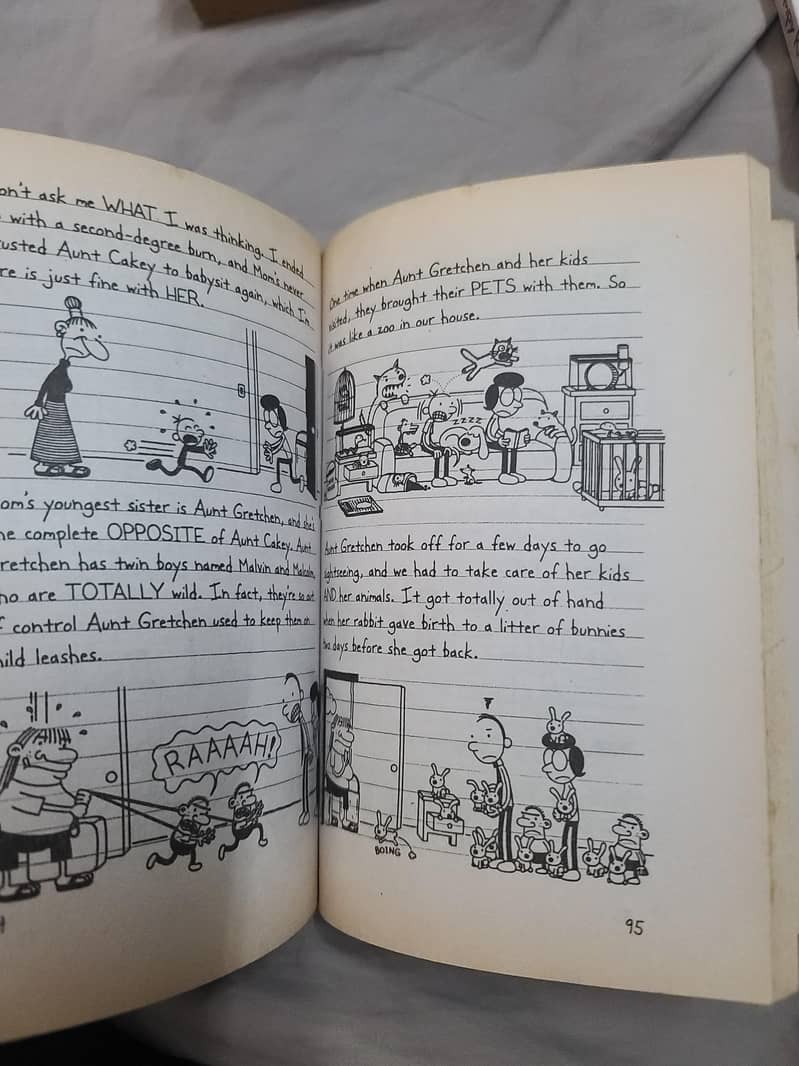 on't ask me WHAT I was thinking. I ended
with a second-degree burn, and Mom's never
usted Aunt Cakey to babysit again, which I'm
re is just fine with HER.
om's youngest sister is Aunt Gretchen, and she's
he complete OPPOSITE of Aunt Cakey. Aunt
retchen has twin boys named Malvin and Malcolm,
ho are TOTALLY wild. In fact, they're so out
f control Aunt Gretchen used to keep them on
hild leashes.
RAAAAH!
One time when Aunt Gretchen and her kids
visited, they brought their PETS with them. So
it was like a zoo in our house.
ZZZZ
Aunt Gretchen took off for a few days to go
sightseeing, and we had to take care of her kids
AND her animals. It got totally out of hand
when her rabbit gave birth to a litter of bunnies
two days before she got back.
BOING
95